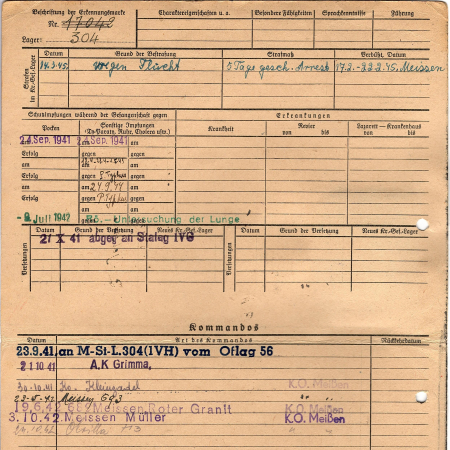 Beschriftung der Erkennungsmarke
Nr. 17042
Lager: 304
Charaktereigenschaften u. a.
Besondere Fähigkeiten
Sprachkenntnisse
Führung
Strafen im Kr.-Gef.-Lager
Datum
Grund der Bestrafung
Strafmaß
Verbüßt, Datum
14.3.45. wegen Flucht 5 Tage gesch. Arrest 17.3.-22.3.45. Meissen
Schutzimpfungen während der Gefangenschaft gegen
Erkrankungen
Pocken
Sonstige Impfungen
(Ty-Paraty, Ruhr, Cholera usw.)
Krankheit
Revier
von bis
Lazarett — Krankenhaus
von bis
am 24. Sep. 1941 am 24. Sep. 1941 am
Erfolg gegen gegen
am am am
Erfolg gegen gegen
am am 24.9.41 am
Erfolg gegen gegen
am am
gegen
9. Juli 1942 Rö.-Untersuchung der Lunge
Versetzungen
Datum
Grund der Versetzung
Neues Kr.-Gef.-Lager
Versetzungen
Datum
Grund der Versetzung
Neues Kr.-Gef.-Lager
21 X 41 abgeg an Stalag IVG
Kommandos
Datum
Art des Kommandos
Rückkehrdatum
23.9.41. an M-St-L.304(IVH) vom Oflag 56
21.10.41 A.K Grimma,
30.10.41 K.O. Meißen
23.5.42 Meissen
19.6.42 Meissen Roter Granit K.O. Meißen
3.10.42. Meissen Müller K.O. Meißen